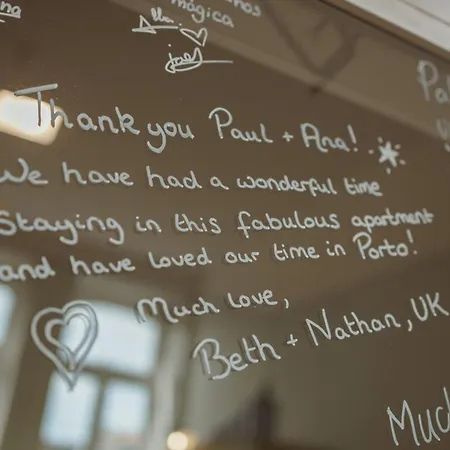 mágica
Thank you Paul + Ana!
We have had a wonderful time
Staying in this fabulous apartment
and have loved our time in Porto!
Much love,
Beth + Nathan, UK